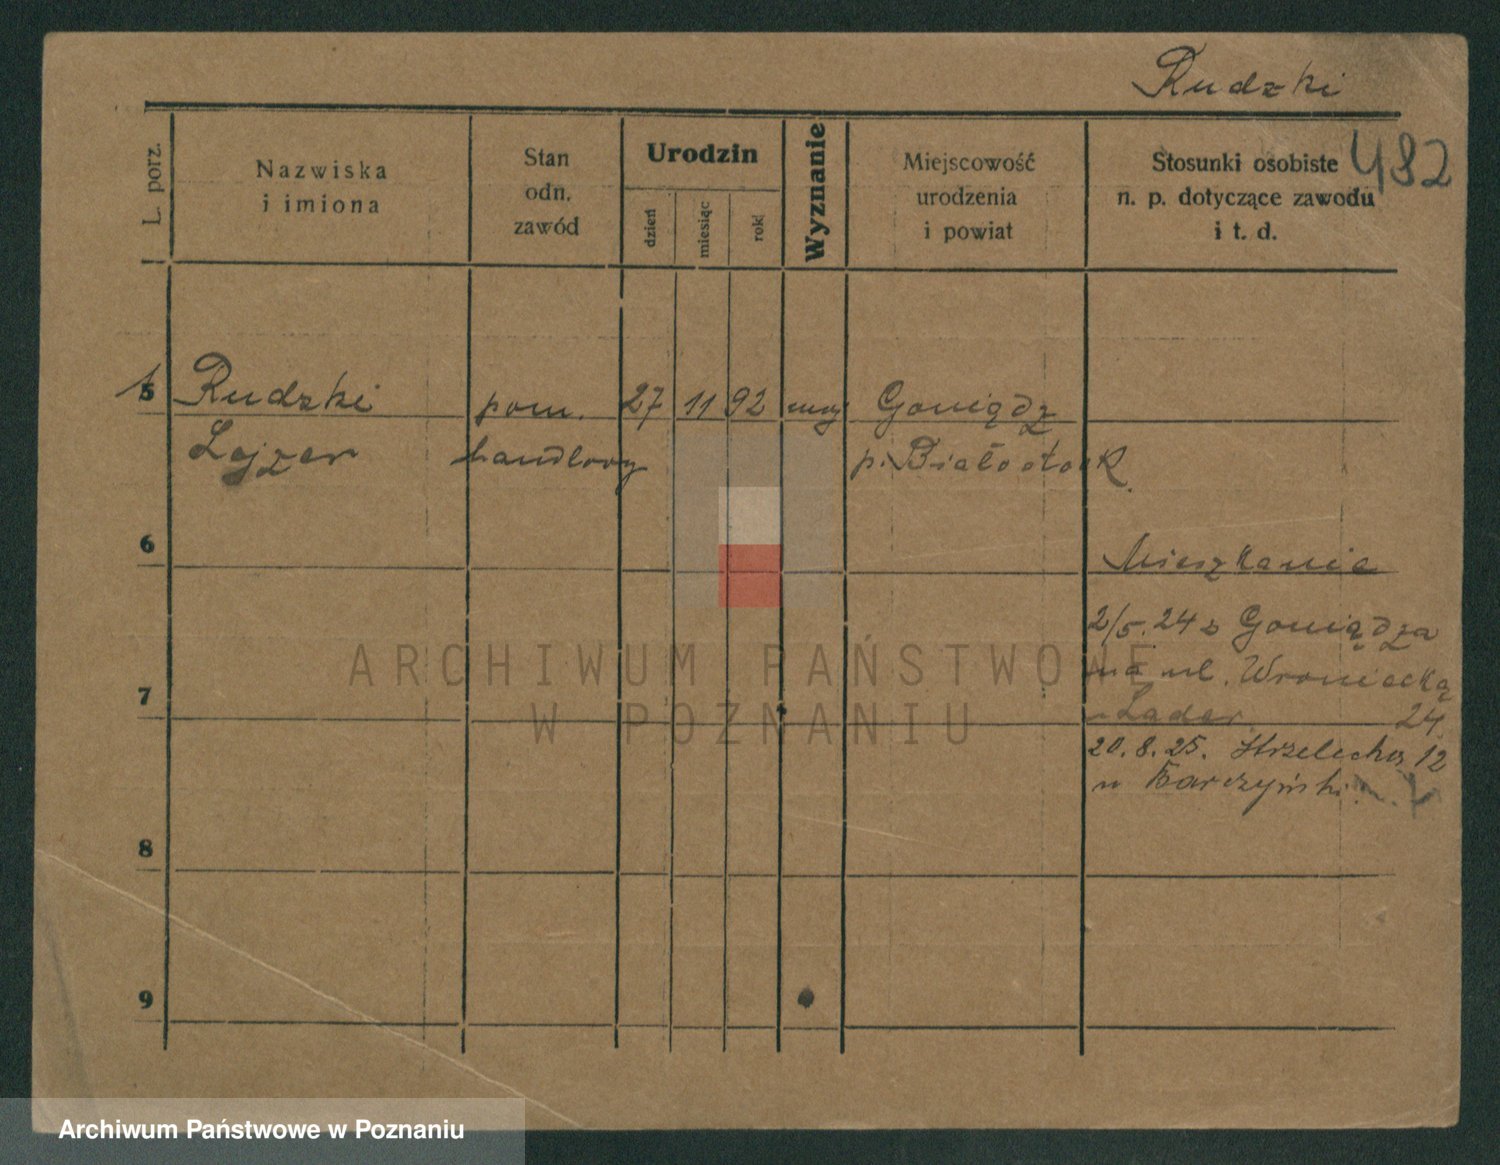 Rudzki
482
L. porz.
Nazwiska
i imiona
Stan
odn.
zawód
Urodzin
dzień
miesiąc
rok
Wyznanie
Miejscowość
urodzenia
i powiat
Stosunki osobiste
n. p. dotyczące zawodu
i t. d.
1 5 Rudzki pom. 27 11 92 moj Goniądz
Lejzer handlowy p. Białostock
6
Mieszkania
2/5.24 z Goniądza
na ul. Wroniecką
7
Lader. 24.
20.8.25. Strzelecka 12
u Barczyński
8
9
ARCHIWUM PAŃSTWOWE
W POZNANIU
Archiwum Państwowe w Poznaniu